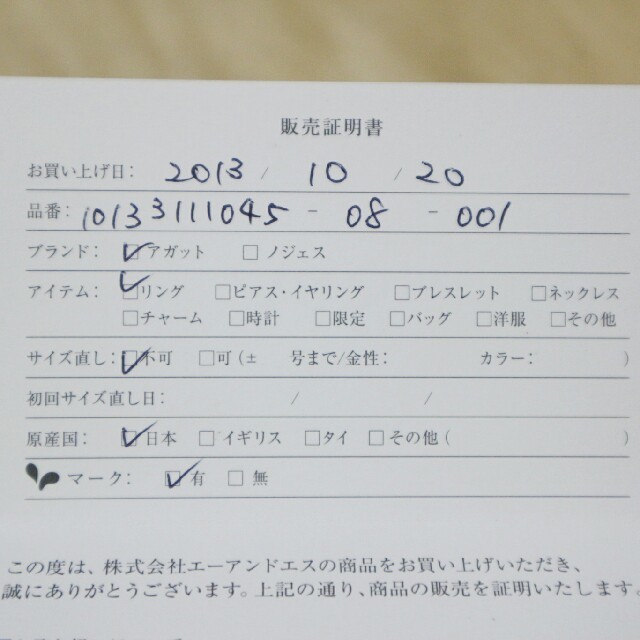 販売証明書
お買い上げ日: 2013 / 10 / 20
品番: 10133111045 - 08 - 001
ブランド: ☑アガット □ ノジェス
アイテム: ☑リング □ピアス・イヤリング □ブレスレット □ネックレス
□チャーム □時計 □限定 □バッグ □洋服 □その他
サイズ直し: ☑不可 □可(± 号まで/金性: カラー: )
初回サイズ直し日: / /
原産国: ☑日本 □イギリス □タイ □その他( )
マーク: ☑有 □ 無
この度は、株式会社エーアンドエスの商品をお買い上げいただき、
誠にありがとうございます。上記の通り、商品の販売を証明いたします。